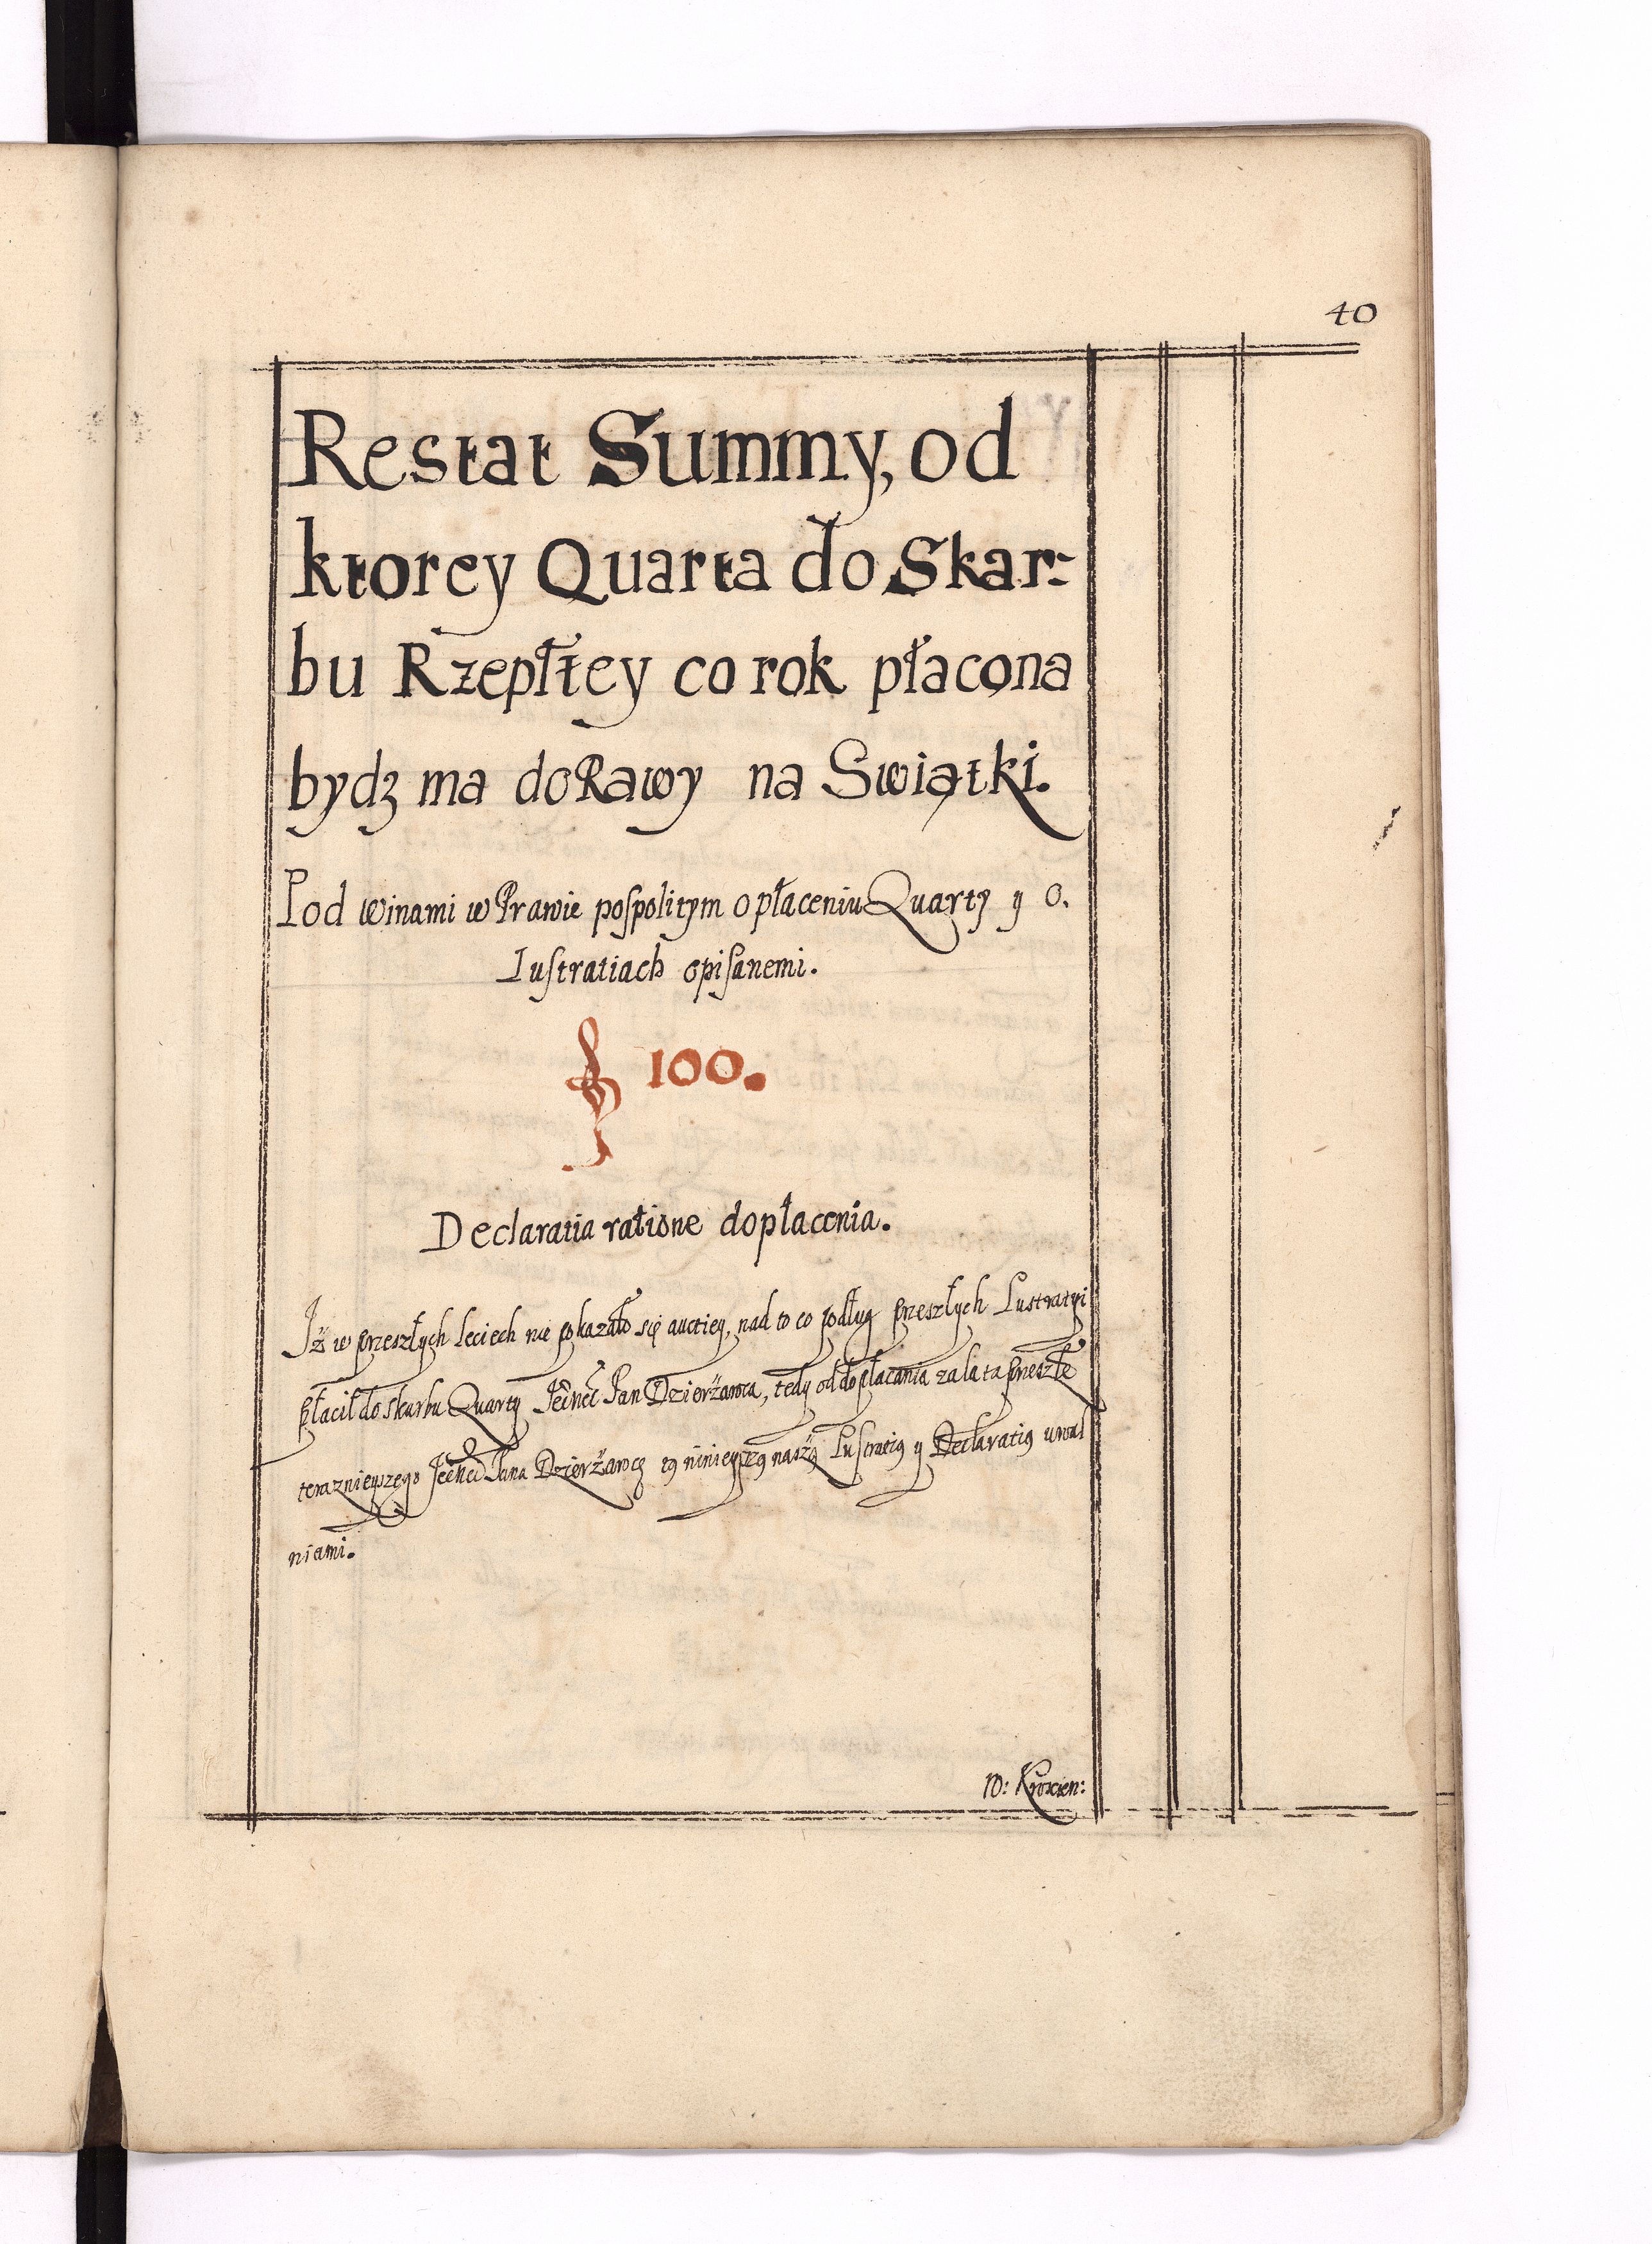 40
Restat Summy, od
ktorey Quarta do Skar:
bu Rzepłtey co rok płacona
bydz ma do Rawy na Swiątki.
Pod winami w Prawie pospolitym o płaceniu Quarty y o.
Lustratiach opisanemi.
100.
Declaratia ratione dopłacenia.
Iż w przeszłych leciech nie pokazało się auctiey, nad to co podług przeszłych Lustratyi
płacił do skarbu Quarty Pan Dzierżawca, tedy od dopłacania za lata przeszłe
teraznieyszego Pana Dzierżawcę tą ninieyszą naszą Lustratią y Declaratią uwal
niami.